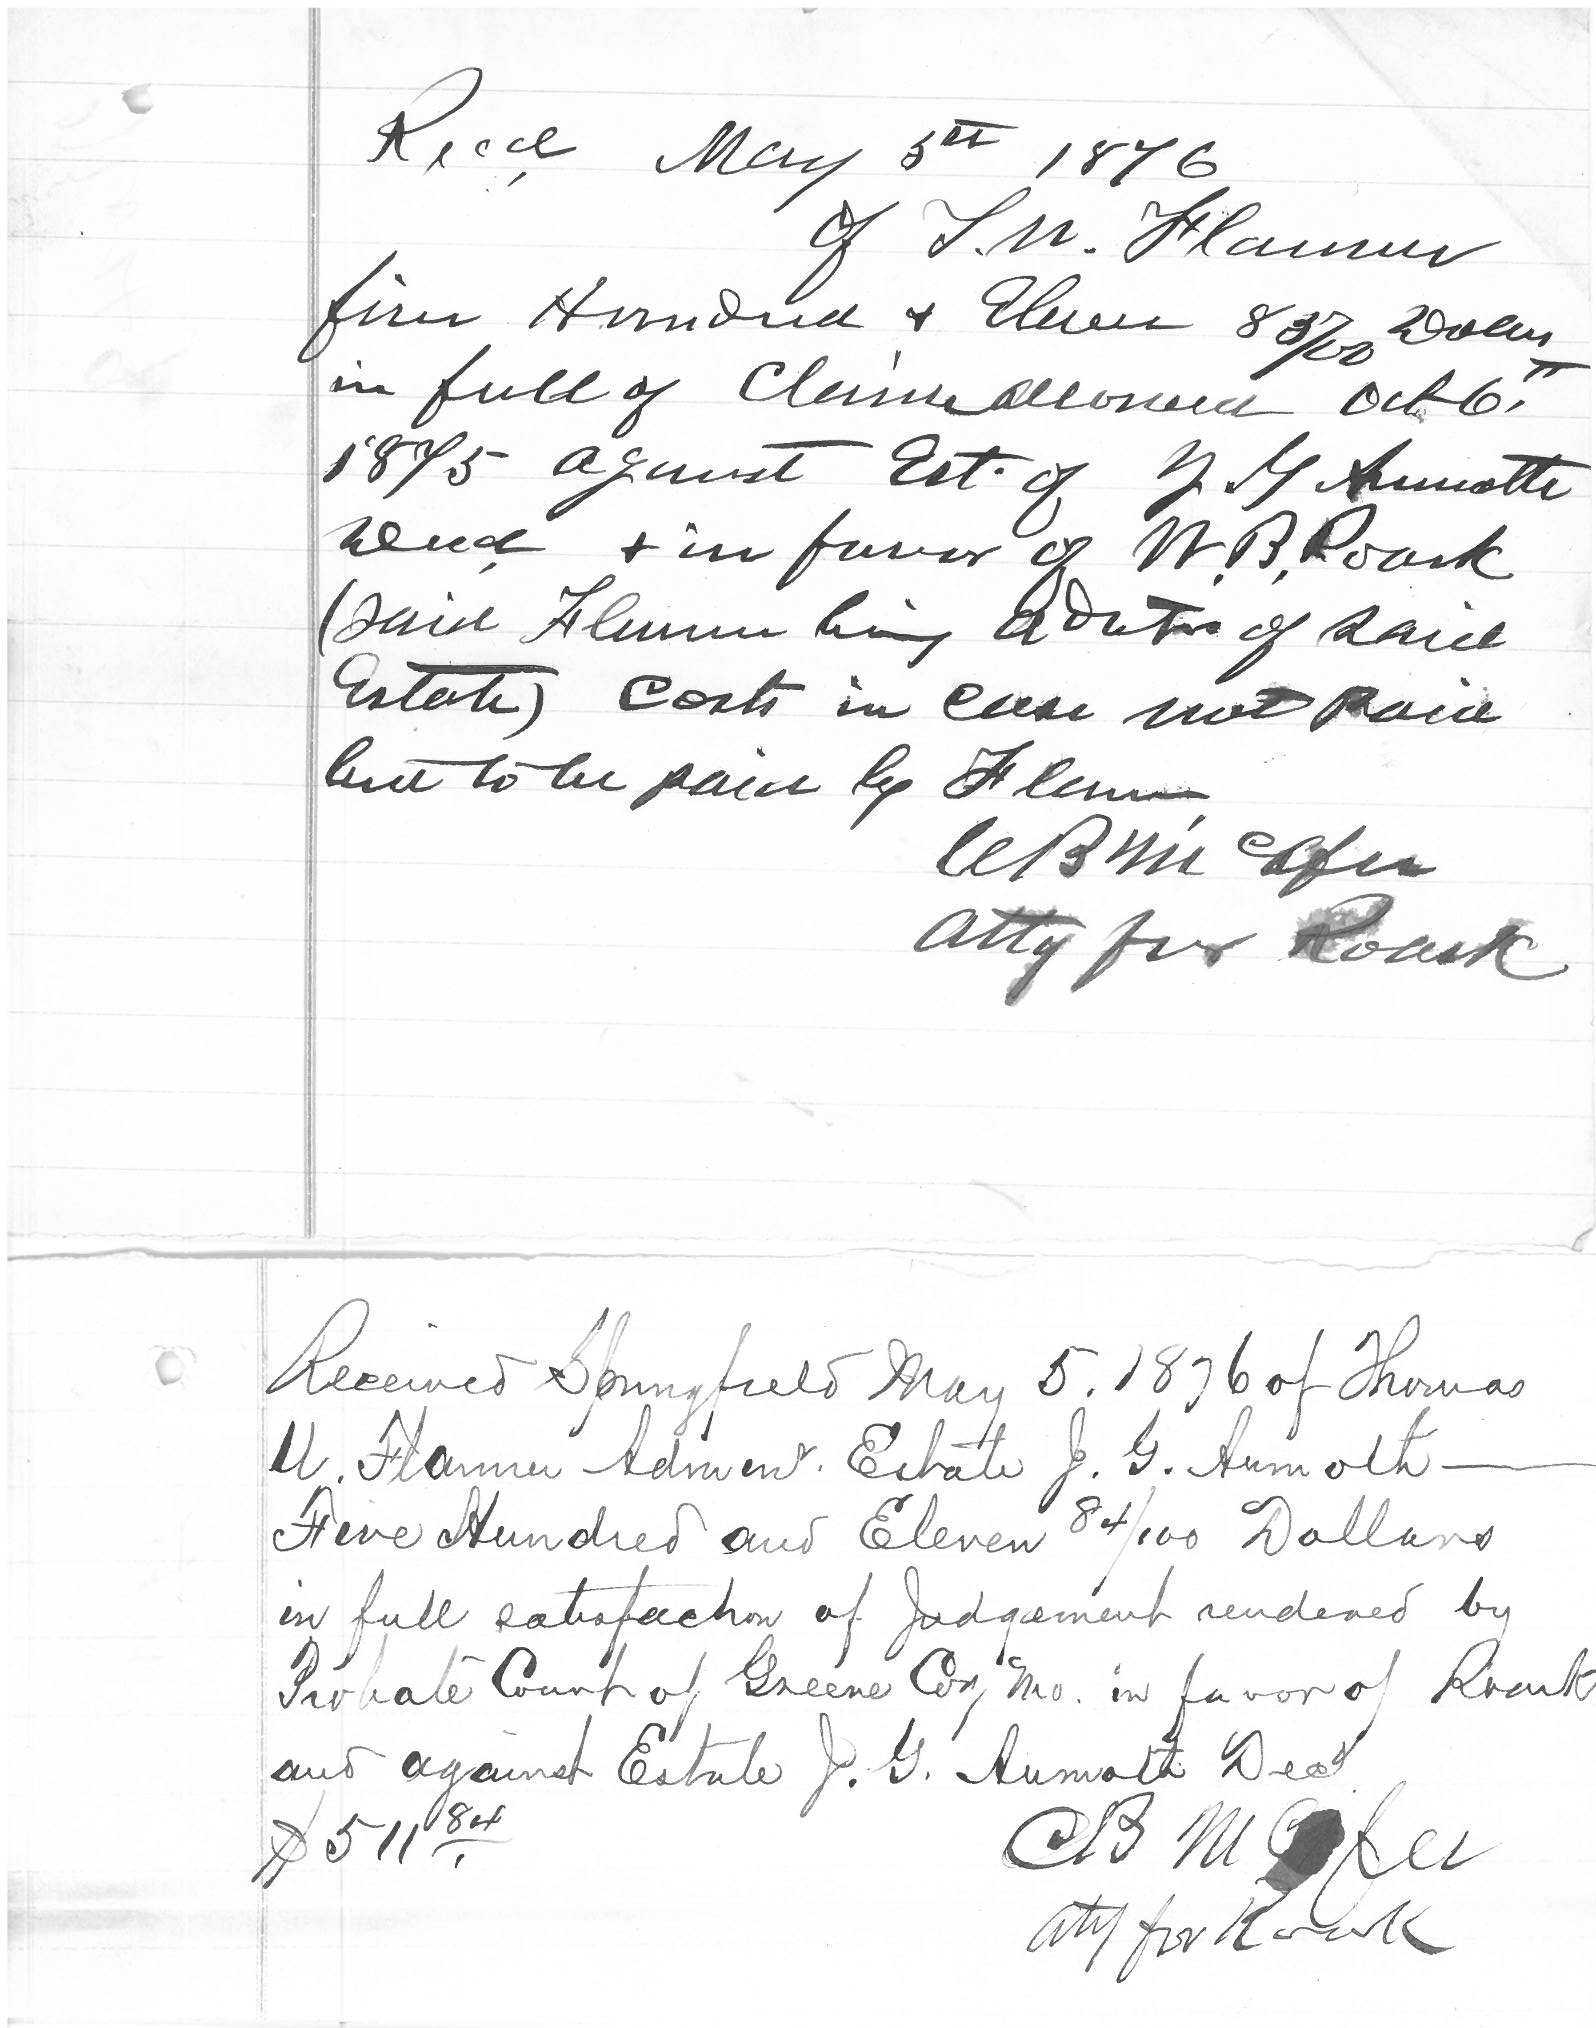 Recd, May 5th 1876
of T. U. Flanner
five Hundred + Eleven 83/100 Dollars
in full of Claim allowed Oct 6th
1875 against Est. of J G Aumotte
Decd, + in favor of W. B. Roark
(said Flanner being Admtr of said
Estate) Costs in case not paid
but to be paid by Flanner
C B McAfee
Atty for Roark
Received Springfield May 5, 1876 of Thomas
U. Flanner Admenr. Estate J. G. Aumoth
Five Hundred and Eleven 84/100 Dollars
in full satisfaction of Judgement rendered by
Probate Court of Greene Coy Mo. in favor of Roark
and against Estate J. G. Aumoth Decd
$511 84
C B McAfee
Atty for Roark